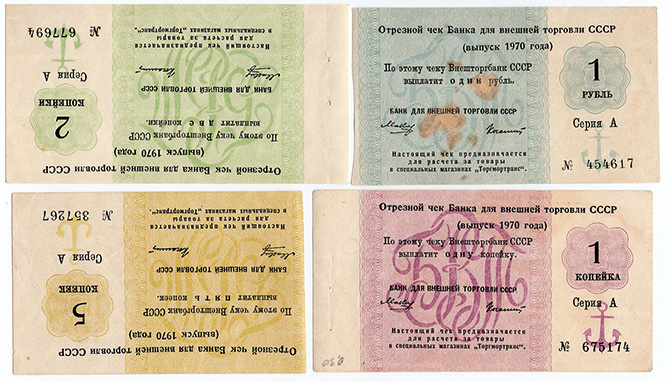 Отрезной чек Банка для внешней торговли СССР
(выпуск 1970 года)
По этому чеку Внешторгбанк СССР
выплатит две копейки.
БАНК ДЛЯ ВНЕШНЕЙ ТОРГОВЛИ СССР
Настоящий чек предназначается
для расчета за товары
в специальных магазинах "Торгмортранс".
2
КОПЕЙКИ
Серия А
№ 677694
Отрезной чек Банка для внешней торговли СССР
(выпуск 1970 года)
По этому чеку Внешторгбанк СССР
выплатит один рубль.
БАНК ДЛЯ ВНЕШНЕЙ ТОРГОВЛИ СССР
Настоящий чек предназначается
для расчета за товары
в специальных магазинах "Торгмортранс".
1
РУБЛЬ
Серия А
№ 454617
Отрезной чек Банка для внешней торговли СССР
(выпуск 1970 года)
По этому чеку Внешторгбанк СССР
выплатит пять копеек.
БАНК ДЛЯ ВНЕШНЕЙ ТОРГОВЛИ СССР
Настоящий чек предназначается
для расчета за товары
в специальных магазинах "Торгмортранс".
5
КОПЕЕК
Серия А
№ 357267
Отрезной чек Банка для внешней торговли СССР
(выпуск 1970 года)
По этому чеку Внешторгбанк СССР
выплатит одну копейку.
БАНК ДЛЯ ВНЕШНЕЙ ТОРГОВЛИ СССР
Настоящий чек предназначается
для расчета за товары
в специальных магазинах "Торгмортранс".
1
КОПЕЙКА
Серия А
№ 675174